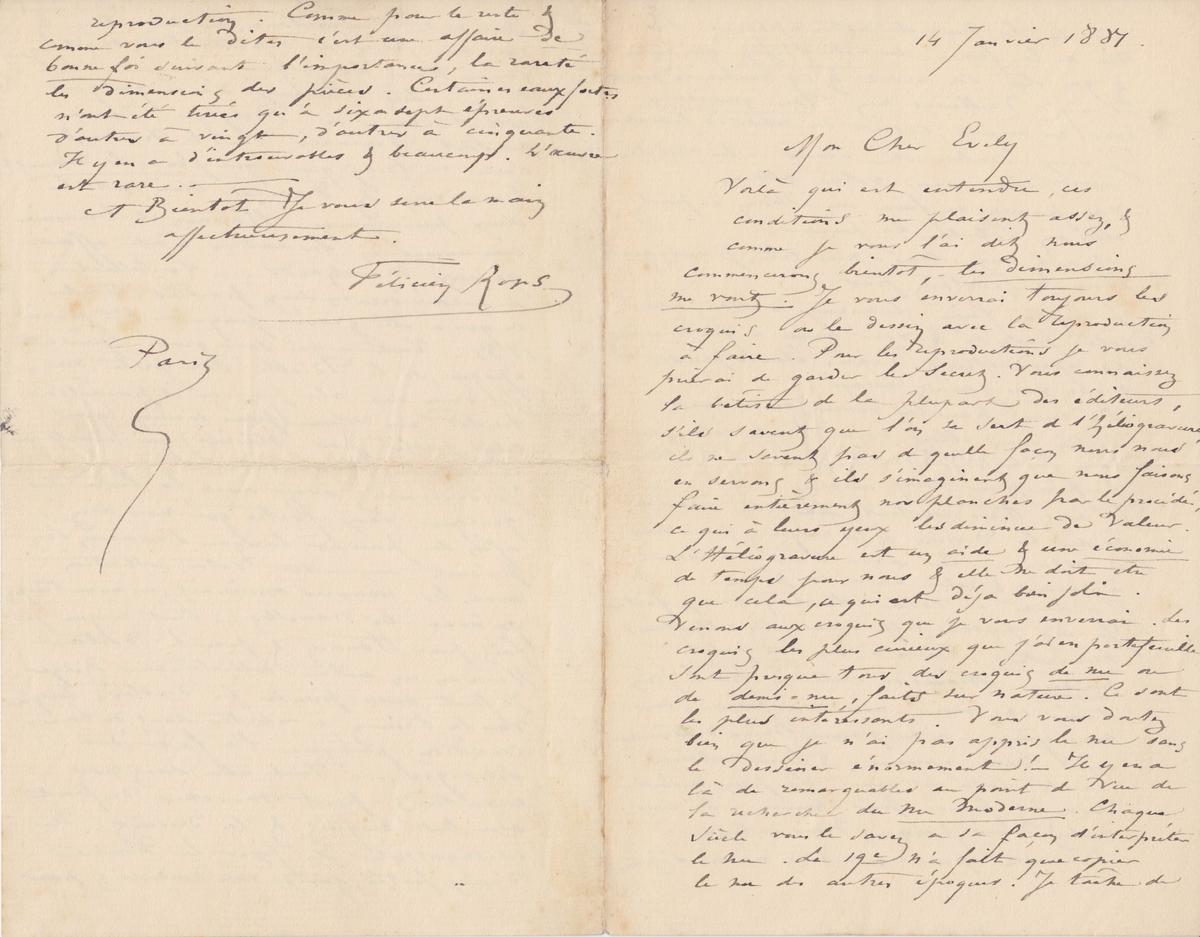 14 Janvier 1887.
Mon Cher Evely
Voilà qui est entendu, ces
conditions me plaisent assez, &
comme je vous l'ai dit nous
commencerons bientôt, - les dimensions
me vont. Je vous enverrai toujours les
croquis ou le dessin avec la reproduction
à faire. Pour les reproductions je vous
prierai de garder le secret. Vous connaissez
la bêtise de la plupart des éditeurs,
s'ils savent que l'on se sert de l'Héliogravure
ils ne savent pas de quelle façon nous nous
en servons & ils s'imaginent que nous faisons
faire entièrement nos planches par le procédé,
ce qui à leurs yeux les diminue de valeur.
L'Héliogravure est un aide & une économie
de temps pour nous & elle ne doit etre
que cela, ce qui est déjà bien joli.
Venons aux croquis que je vous enverrai. Les
croquis les plus curieux que j'ai en portefeuille
sont presque tous des croquis de nu ou
de demi-nu, faits sur nature. Ce sont
les plus intéressants. Vous vous doutez
bien que je n'ai pas appris le nu sans
le dessiner énormement! - Il y en a
là de remarquables au point de vue de
la recherche du nu moderne. Chaque
siècle vous le savez a sa façon d'interpréter
le nu. Le 19e n'a fait que copier
le nu des autres époques. Je tâche de
reproduction. Comme pour le reste &
comme vous le dites c'est une affaire de
bonne foi suivant l'importance, la rareté
les dimensions des pièces. Certaines eaux fortes
n'ont été tirées qu'à six a sept épreuves
d'autres à vingt, d'autres à cinquante.
Il y en a d'introuvables & beaucoup. L'œuvre
est rare. -
A Bientôt Je vous serre la main
affectueusement.
Félicien Rops
Paris